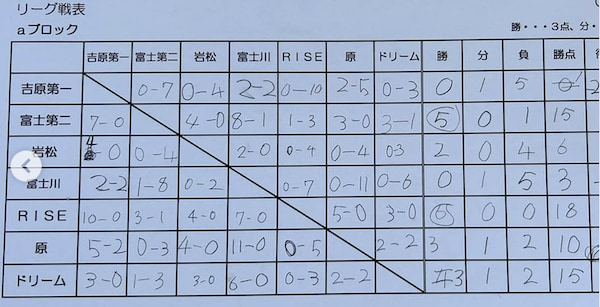 リーグ戦表
aブロック
勝・・・3点、分・
吉原第一 富士第二 岩松 富士川 RISE 原 ドリーム 勝 分 負 勝点 得
吉原第一 0-7 0-4 2-2 0-10 2-5 0-3 0 1 5
富士第二 7-0 4-0 8-1 1-3 3-0 3-1 5 0 1 15
岩松 4-0 0-4 2-0 0-4 0-4 0-3 2 0 4 6
富士川 2-2 1-8 0-2 0-7 0-11 0-6 0 1 5 3
RISE 10-0 3-1 4-0 7-0 5-0 3-0 0 0 18
原 5-2 0-3 4-0 11-0 0-5 2-2 3 1 2 10
ドリーム 3-0 1-3 3-0 6-0 0-3 2-2 3 1 2 15